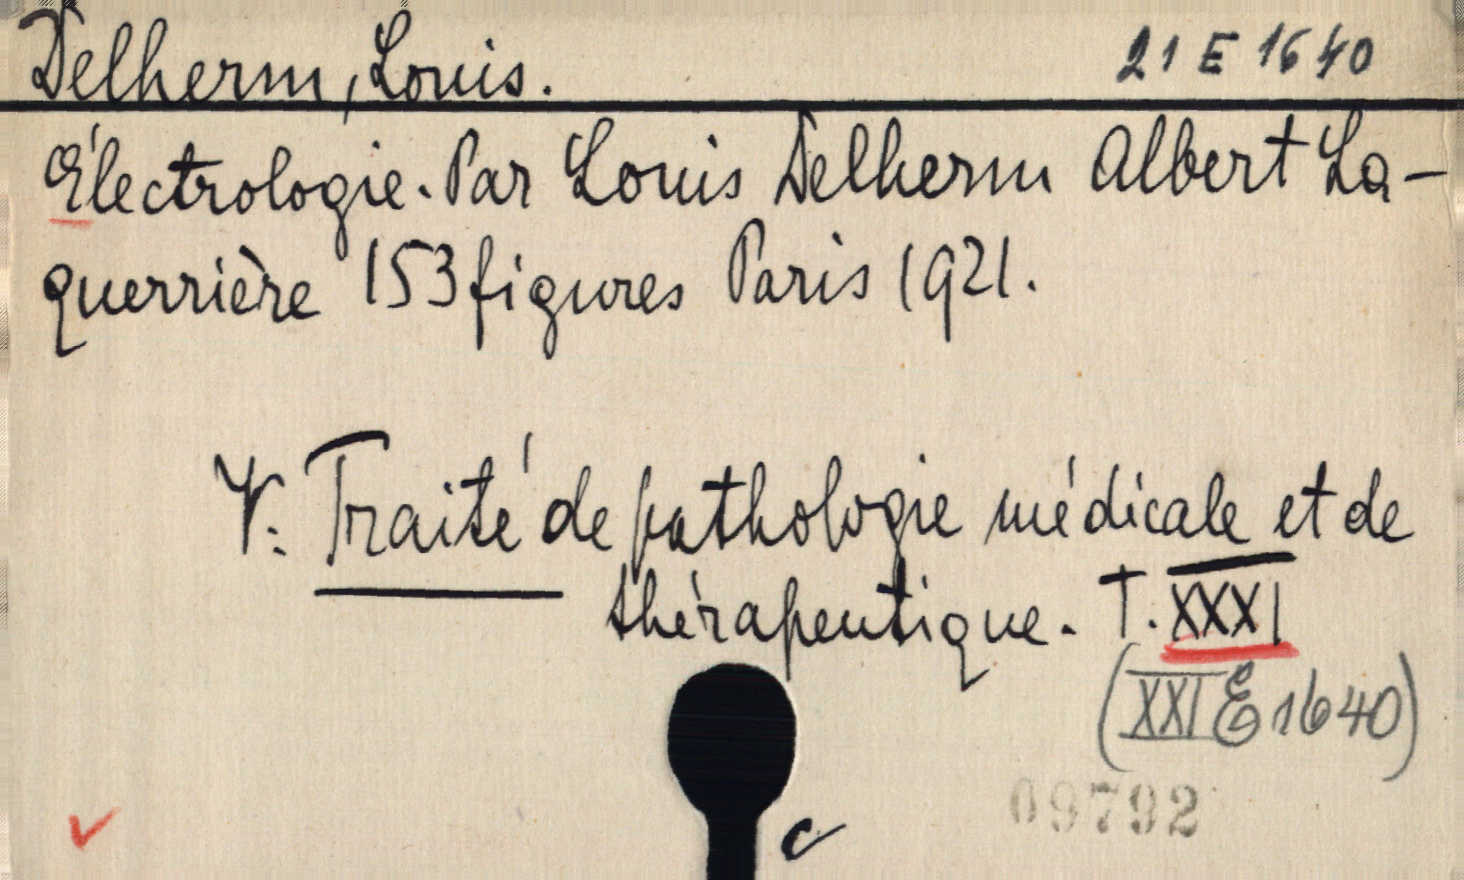 Delherm, Louis. 21 E 1640
Électrologie. Par Louis Delherm Albert La-
querrière 153 figures Paris 1921.
V. Traité de pathologie médicale et de
thérapeutique. T. XXXI
(XXI E 1640)
09792
c